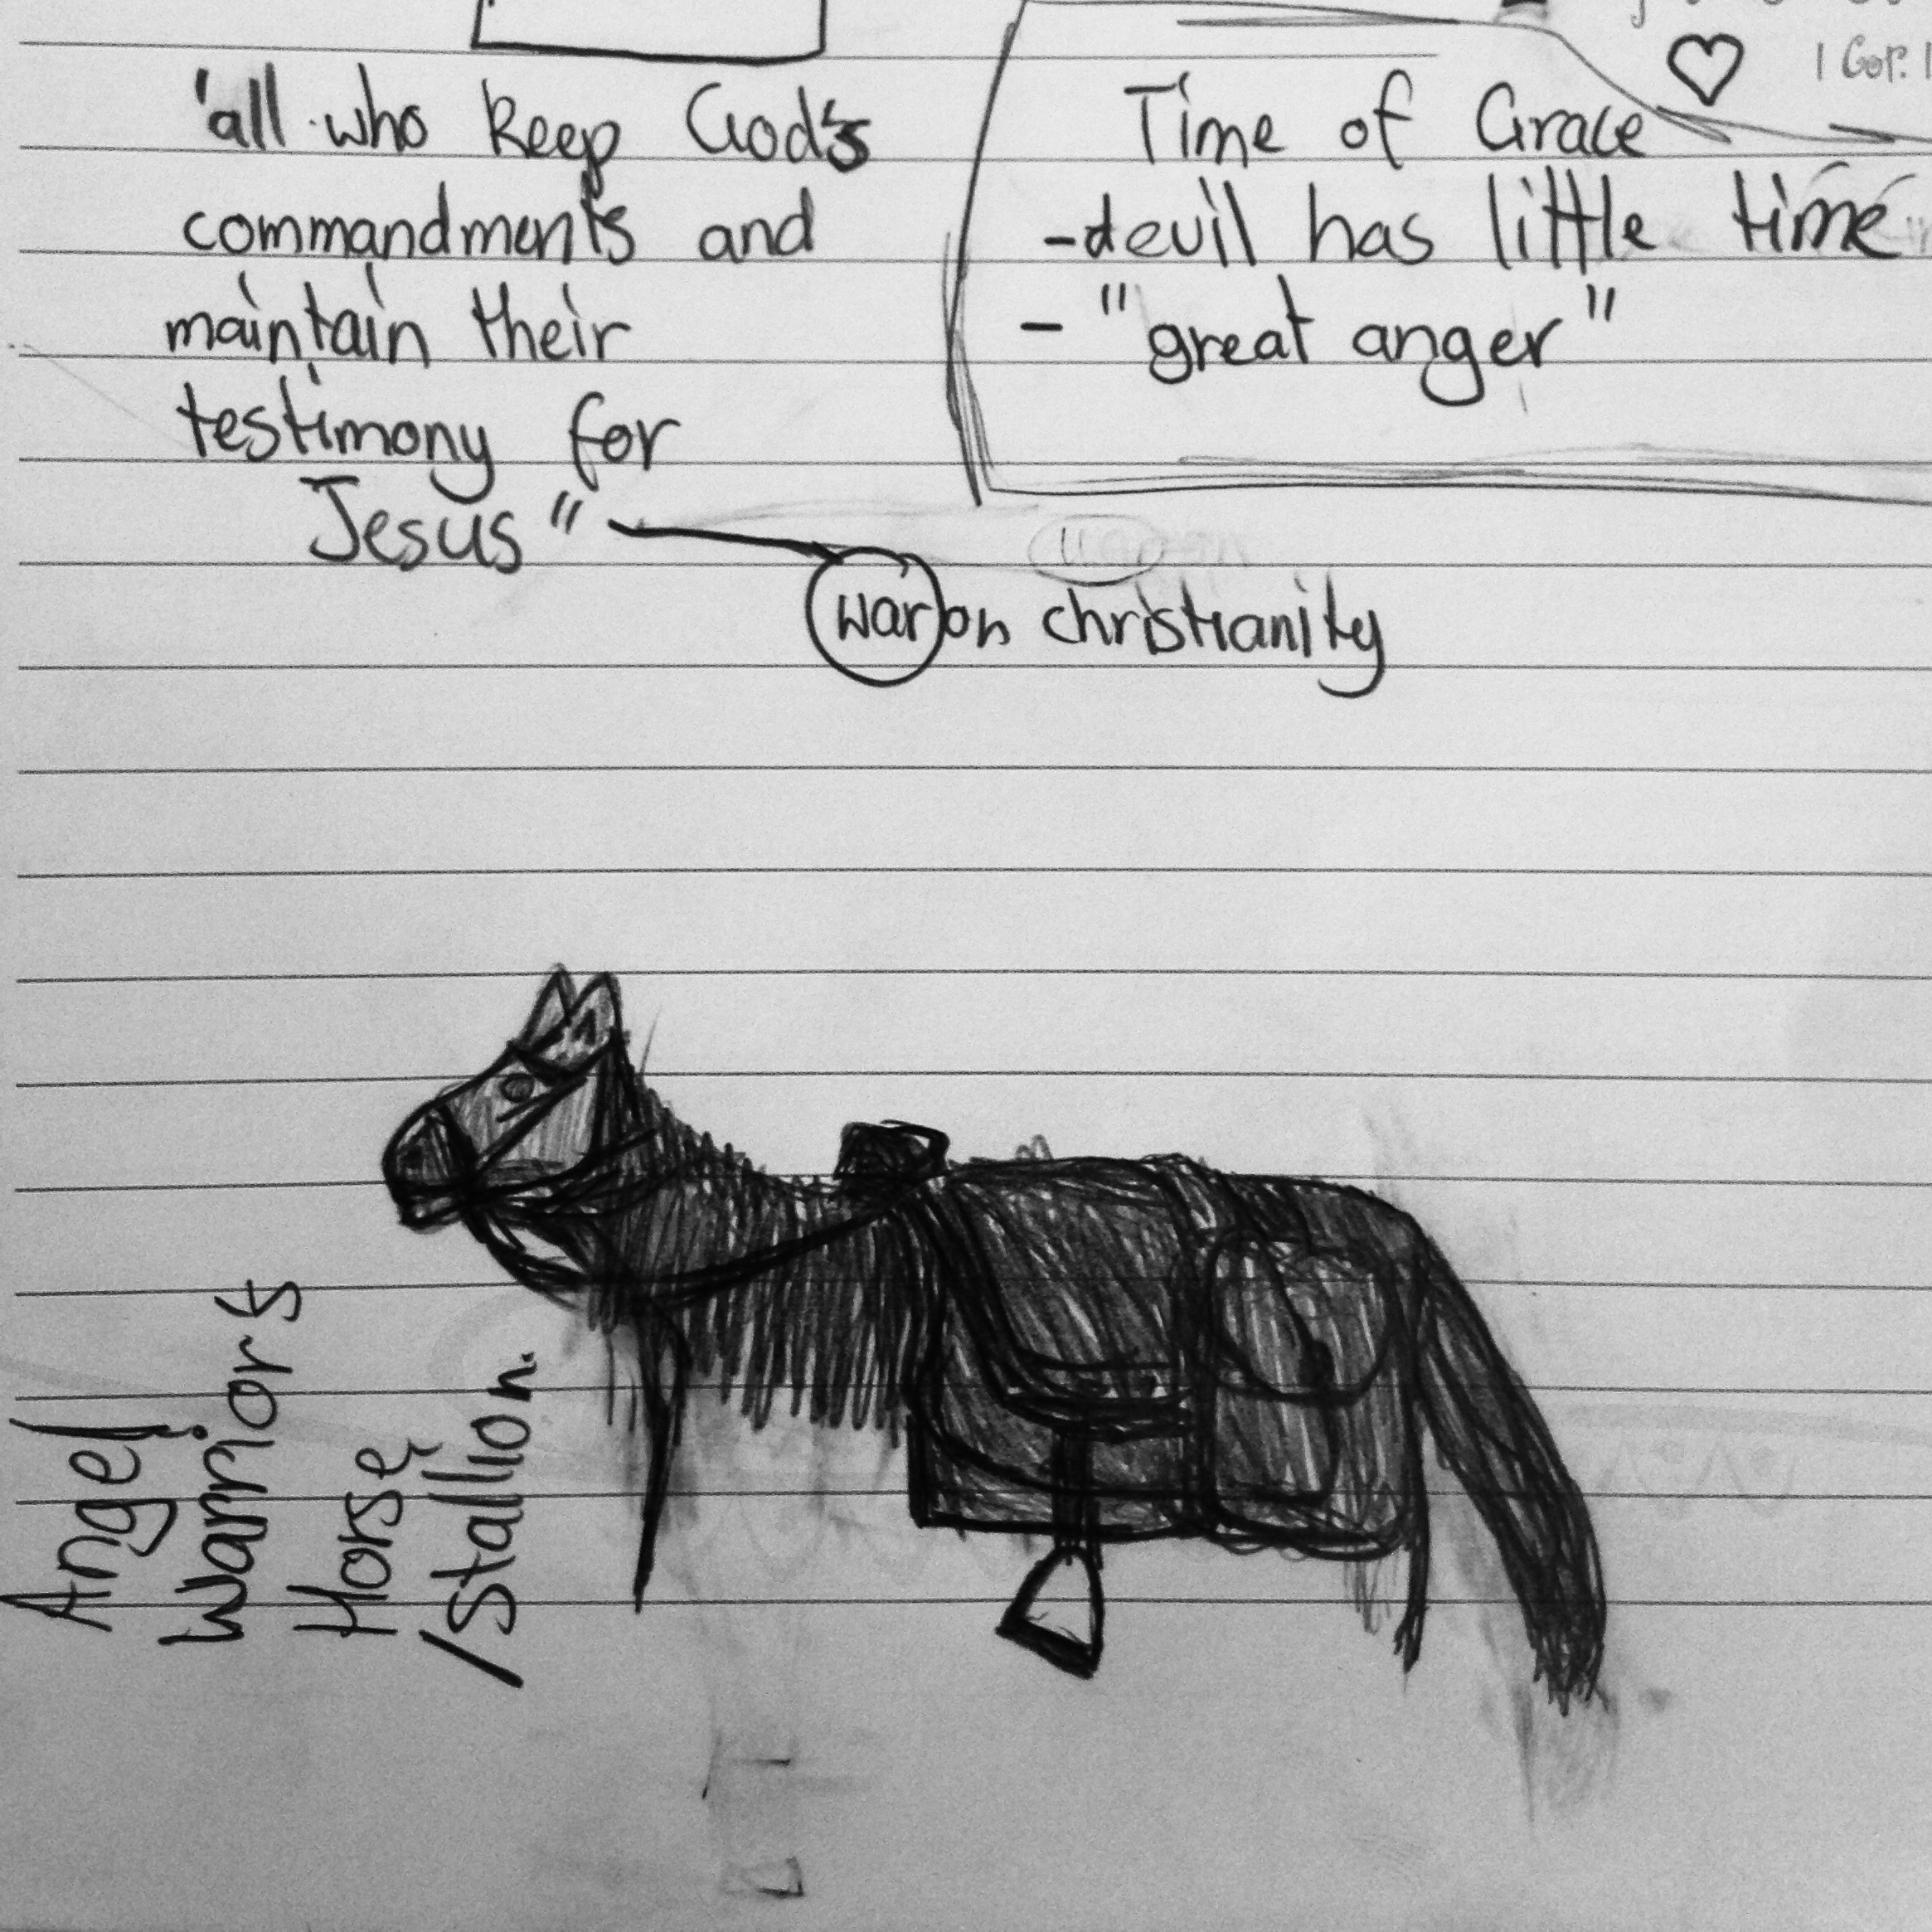 'all who keep God's
commandments and
maintain their
testimony for
Jesus"
war on christianity
Time of Grace
-devil has little time
- "great anger"
1 Cor. 1
Angel
Warriors
Horse
/Stallion.